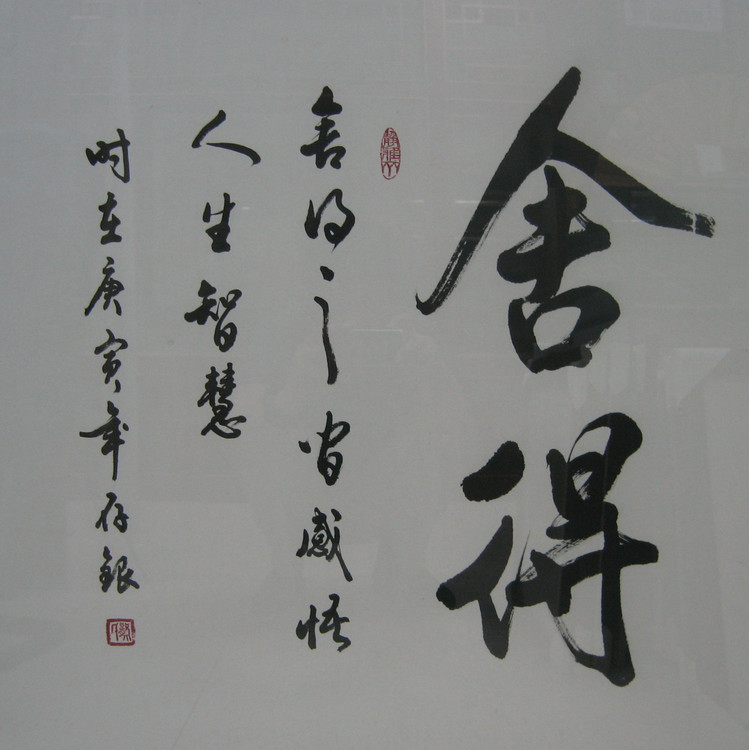 舍得
舍得之间感悟
人生智慧
时在庚寅年存银